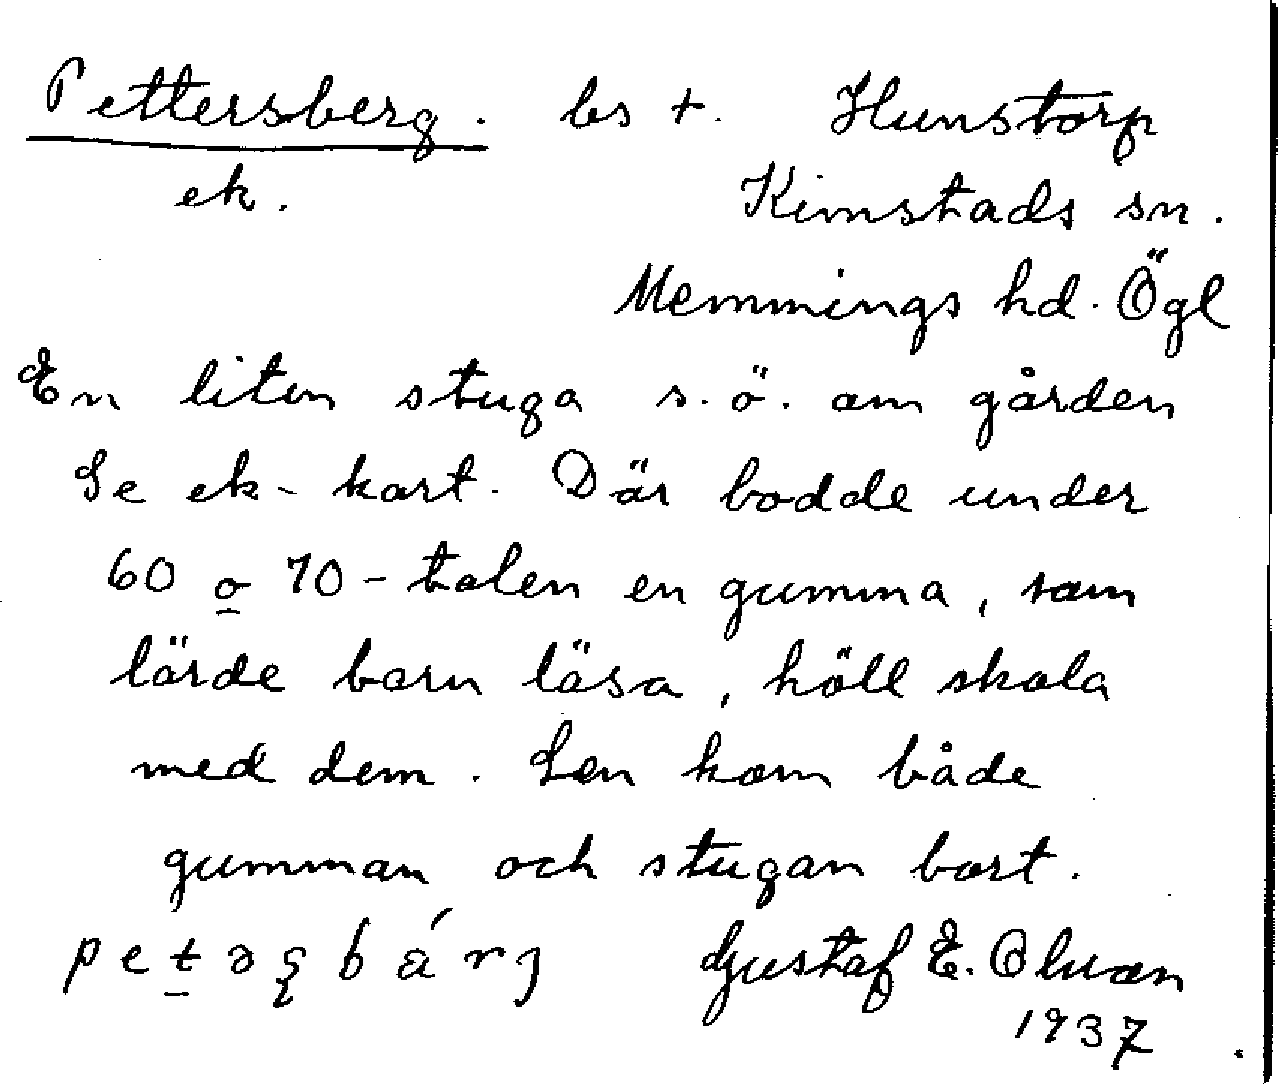 Pettersberg. ls +. Hunstorp
ek. Kimstads sn.
Memmings hd. Ögl
En liten stuga s.ö. om gården
Se ek-kart. Där bodde under
60 o 70-talen en gumma, som
lärde barn läsa, höll skola
med dem. Sen kom både
gumman och stugan bort.
Gustaf E. Olson
1937